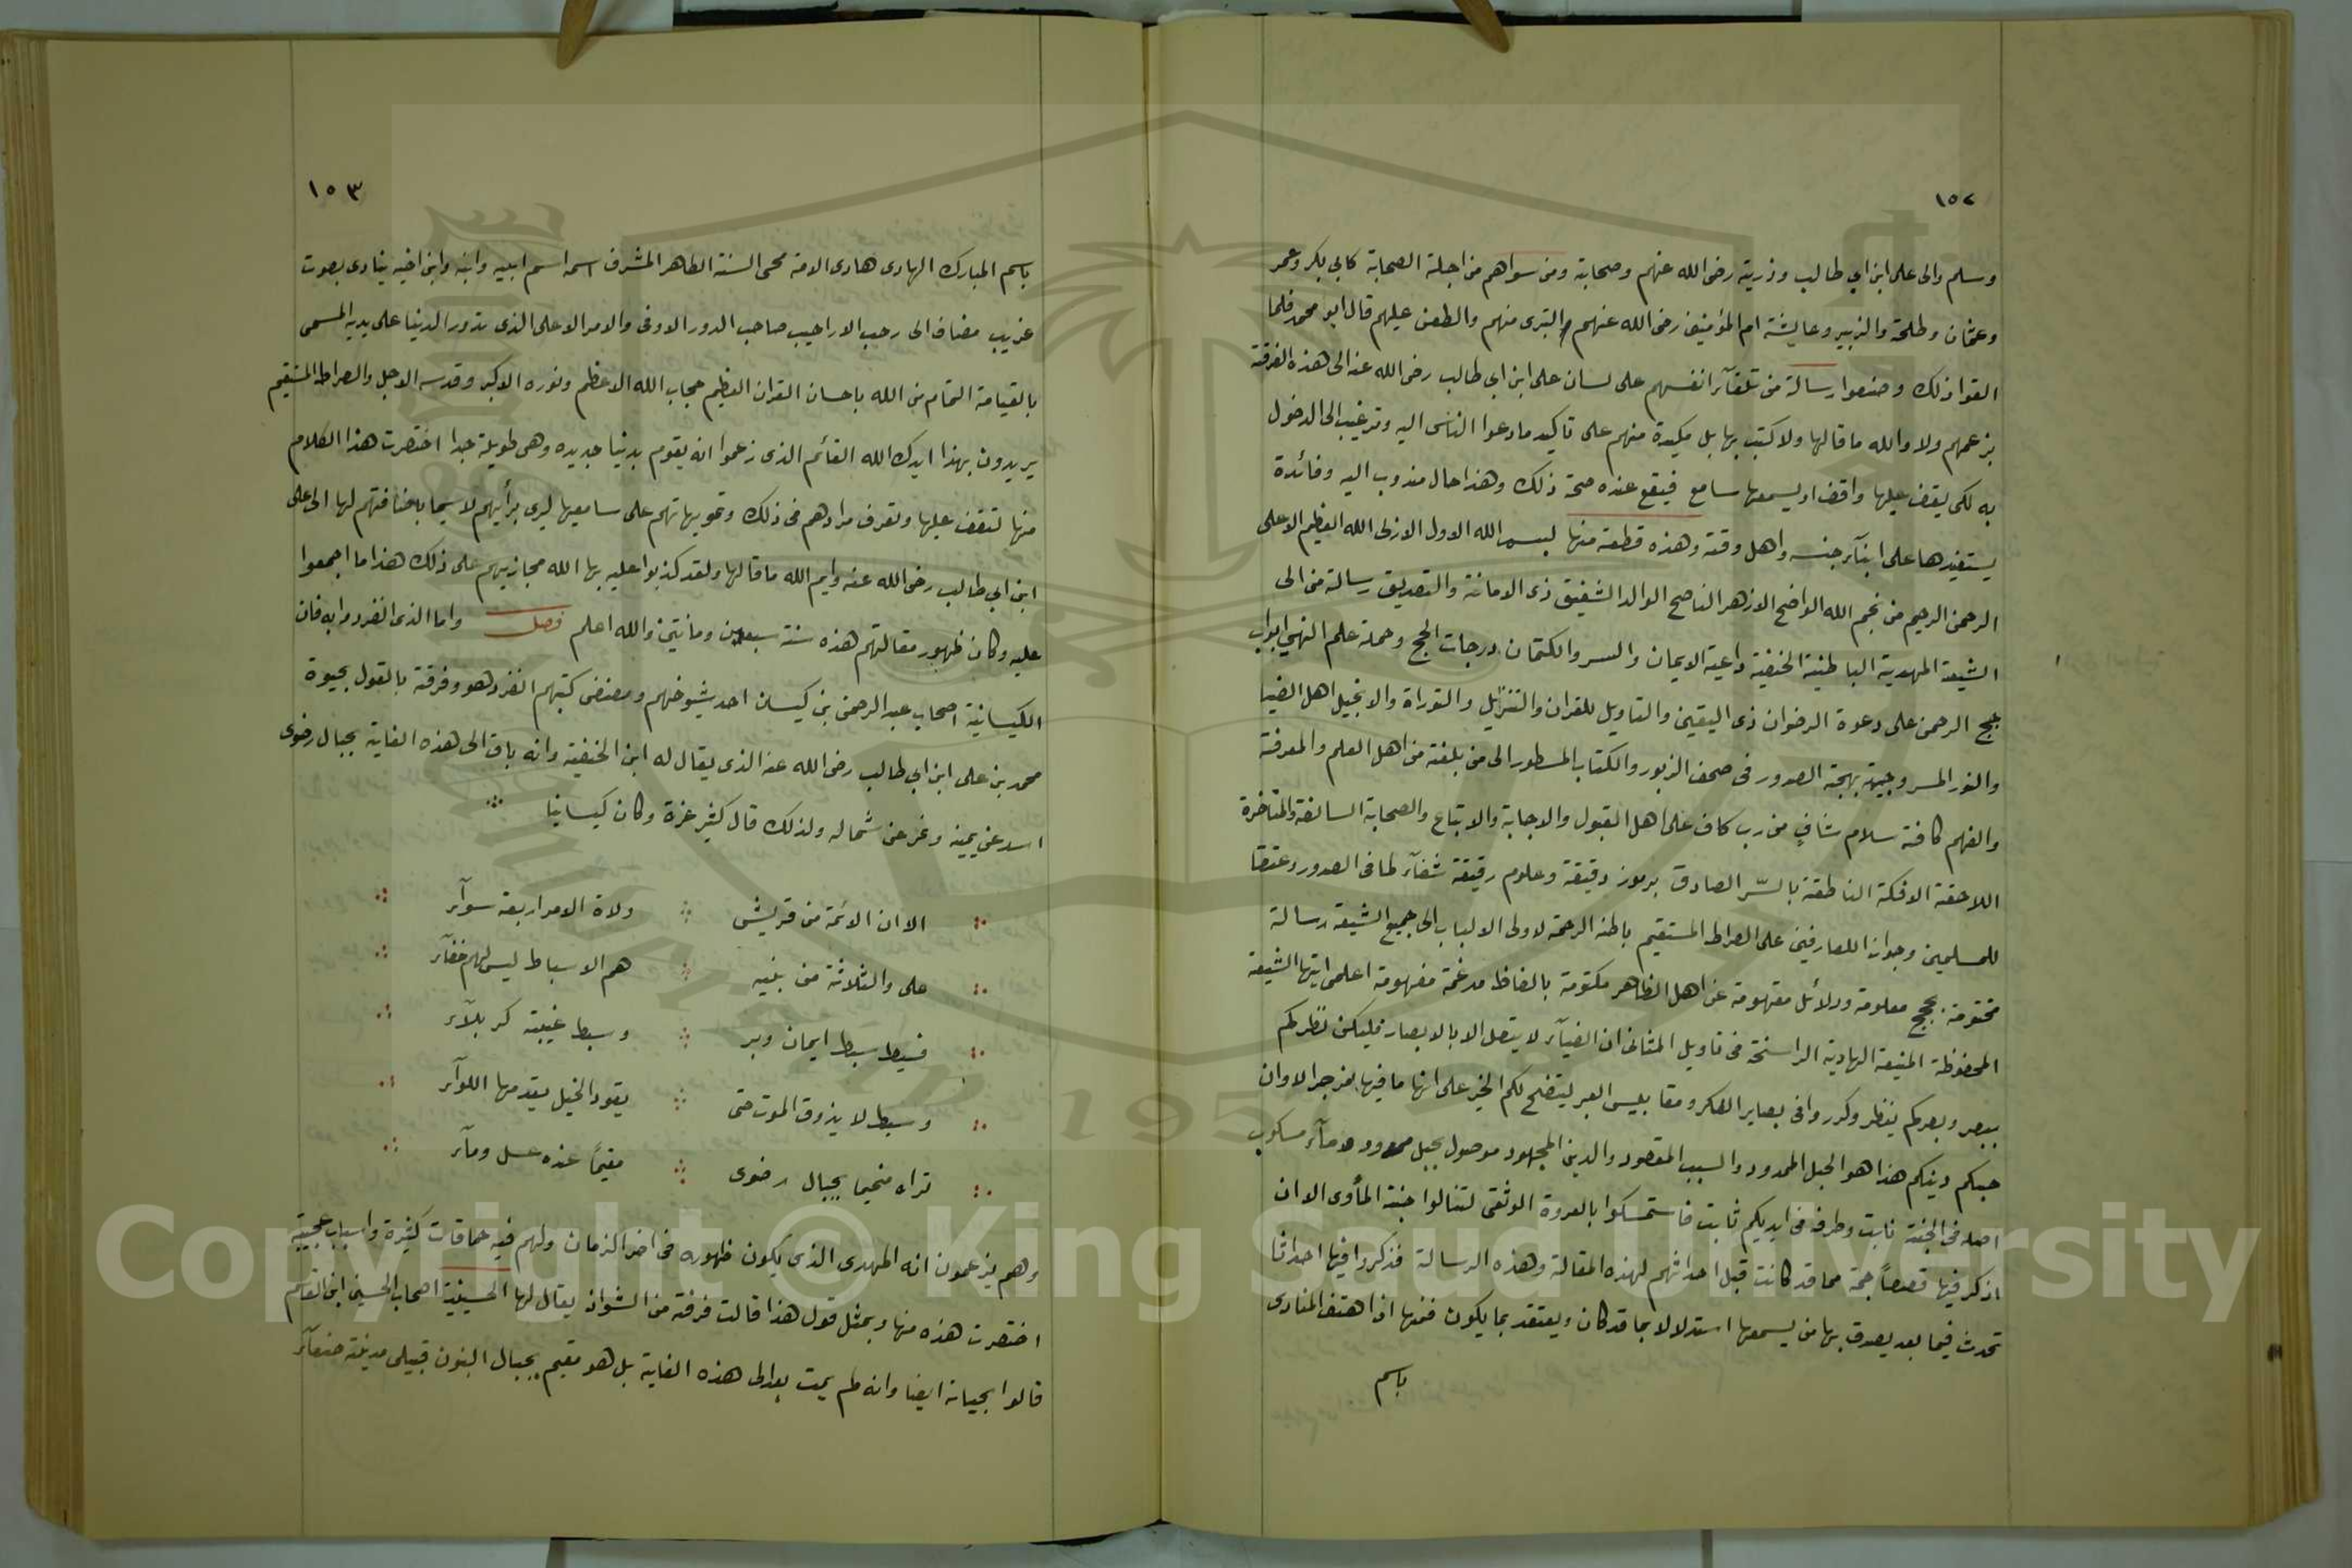 ١٥٢
وسلم والى على ابن ابي طالب وذريته رضى الله عنهم وصحابته ومن سواهم من اجلة الصحابة كابي بكر وعمر
وعثمان وطلحة والزبير وعايشة ام المؤمنين رضى الله عنهم والتبرى منهم والطعن عليهم قال ابو محمد فلما
القوا ذلك وصنعوا رسالة من تلقآء انفسهم على لسان على ابن ابي طالب رضى الله عنه الى هذه الفرقة
بزعمهم ولا والله ما قالها ولا كتب بها بل مكيدة منهم على تاكيد ما دعوا الناس اليه وترغيب الى الدخول
به لكى يقف عليها واقف او يسمعها سامع فيقع عنده صحة ذلك وهذا حال مندوب اليه وفائدة
يستفيدها على ابنآء جنسه واهل وقته وهذه قطعة منها بسم الله الاول الازلى الله العظيم الاعلى
الرحمن الرحيم من نجم الله الواضح الازهر الناصح الوالد الشفيق ذى الامانة والتصديق رسالة من الى
الشيعة المهدية الباطنية الحنفية داعية الايمان والسر والكتمان درجات الحج وحملة علم النهى ابواب
حجج الرحمن على دعوة الرضوان ذى اليقين والتاويل للقران والتنزيل والتوراة والانجيل اهل الضيا
والنور المسر وجيه بهجة الصدور فى صحف الزبور والكتاب المسطور الى من بلغته من اهل العلم والمعرفة
والفهم كافة سلام شافٍ من رب كاف على اهل القبول والاجابة والاتباع والصحابة السالفة والمتاخرة
اللاحقة الافكة الناطقة بالسّر الصادق برموز دقيقة وعلوم رقيقة شفآء لما فى الصدور وعتقا
للمسلمين وجوازا للعارفين على الصراط المستقيم باطنه الرحمة لاولى الالباب الى جميع الشيعة رسالة
مختومة بحجج معلومة ودلائل مفهومة عن اهل الظاهر مكتومة بالفاظ مدغمة مفهومة اعلمى ايتها الشيعة
المحفوظة المنيعة الهادية الراسخة فى تاويل المثانى ان الضيآء لا يتصل الا بالابصار فليكن نظركم
ببصر وبصركم ينظر وكرروا فى بصاير الفكر ومقاييس العبر ليتضح لكم الخبر على انها ما فيها بمزجر الاوان
حبكم دينكم هذا هو الحبل الممدود والسبب المقصود والدين المجهود موصول بحبل ممدود ومآء مسكوب
اصله فى الجنة نابت وطرفه فى ايديكم ثابت فاستمسكوا بالعروة الوثقى لتنالوا جنة المأوى الا ان
اذكر فيها قصصاً جمة مما قد كانت قبل احداثهم لهذه المقالة وهذه الرسالة فذكروا فيها احداثا
تحدث فيما بعد يصدق بها من يسمعها استدلالا بما قد كان ويعتقد بما يكون فمنها اذا هتف المنادى
باسم
١٥٣
باسم المبارك الهادى هادى الامة محى السنة الطاهر المشرف اسمه اسم ابيه وابنه وابن اخيه ينادى بصوت
غريب مضاف الى رحب الاراحيب صاحب الدور الاوفى والامر الاعلى الذى تدور الدنيا على يديه المسمى
بالقيامة التمام من الله باحسان القران العظيم حجاب الله الاعظم ونوره الاكبر وقدسه الاجل والصراط المستقيم
يريدون بهذا ايدك الله القائم الذى زعموا انه يقوم بدنيا جديده وهى طويلة جدا اختصرت هذا الكلام
منها لتقف عليها وتعرف مرادهم فى ذلك وتمويهاتهم على سامعيها ليرى برأيهم لاسيما باضافتهم لها الى على
ابن ابي طالب رضى الله عنه وايم الله ما قالها ولقد كذبوا عليه بها الله مجازيهم على ذلك هذا ما اجمعوا
عليه وكان ظهور مقالتهم هذه سنة سبعين ومائتين والله اعلم فصل واما الذى انفردوا به فان
الكيسانية اصحاب عبد الرحمن بن كيسان احد شيوخهم ومصنفى كتبهم انفرد هو وفرقته بالقول بحيوة
محمد بن على ابن ابي طالب رضى الله عنه الذى يقال له ابن الحنفية وانه باق الى هذه الغاية بجبال رضوى
اسد عن يمينه ونمر عن شماله ولذلك قال كثير عزة وكان كيسانيا
الا ان الائمة من قريش ولاة الامر اربعة سوآء
على والثلاثة من بنيه هم الاسباط ليس لهم خفآء
فسبط سبط ايمان وبر وسبط غيبته كربلآء
وسبط لا يذوق الموت حتى يقود الخيل يقدمها اللوآء
تراه مخيما بجبال رضوى مقيمًا عنده عسل ومآء
وهم يزعمون انه المهدى الذى يكون ظهوره فى اخر الزمان ولهم فيه حماقات كثيرة واسباب عجيبة
اختصرت هذه منها وبمثل قول هذا قالت فرقة من الشواذ يقال لها الحسينية اصحاب الحسين ابن القاسم
قالوا بحياته ايضا وانه لم يمت بعد الى هذه الغاية بل هو مقيم بجبال البون قبيلى مدينة صنعآء
Copyright © King Saud University